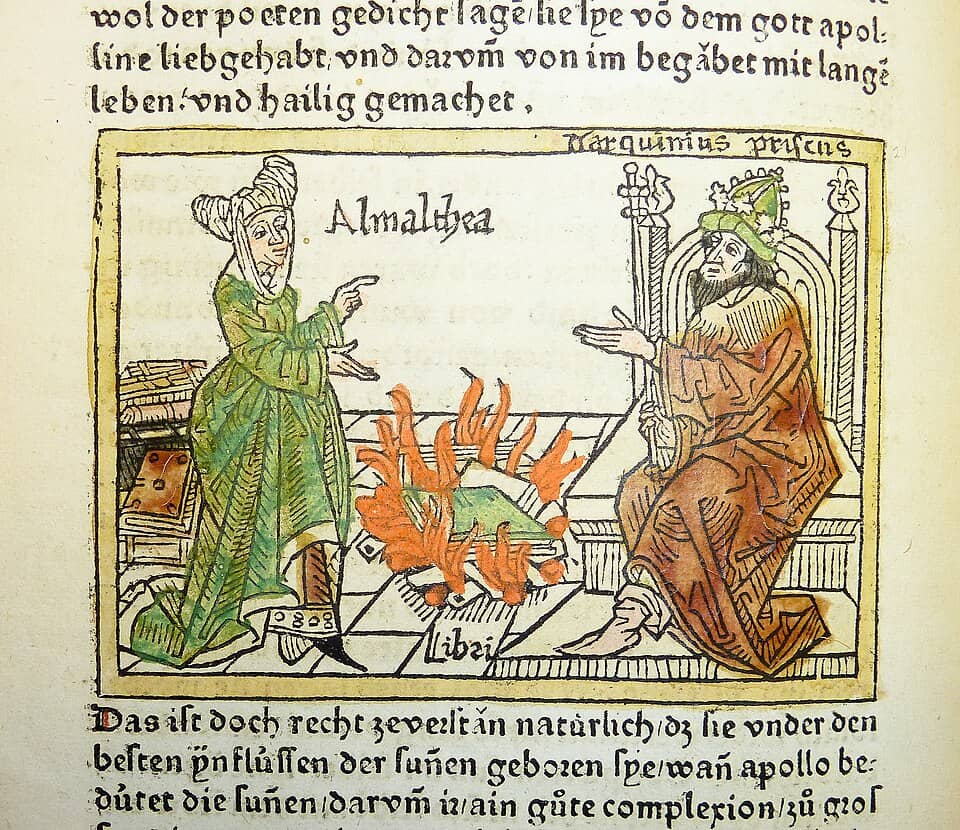 wol der poeten gedicht sagē/sie sye vō dem gott apol:
line liebgehabt/vnd darvm̄ von im begǎbet mit langē
leben/vnd hailig gemachet.
Tarquinius priscus
Almalthea
Libri
Das ist doch recht zeverstǎn natúrlich/dz sie vnder den
besten ÿnflússen der suñen geboren sye/wañ apollo be:
dútet die suñen/darvm̄ ir/ain gůte complexion/zů gros